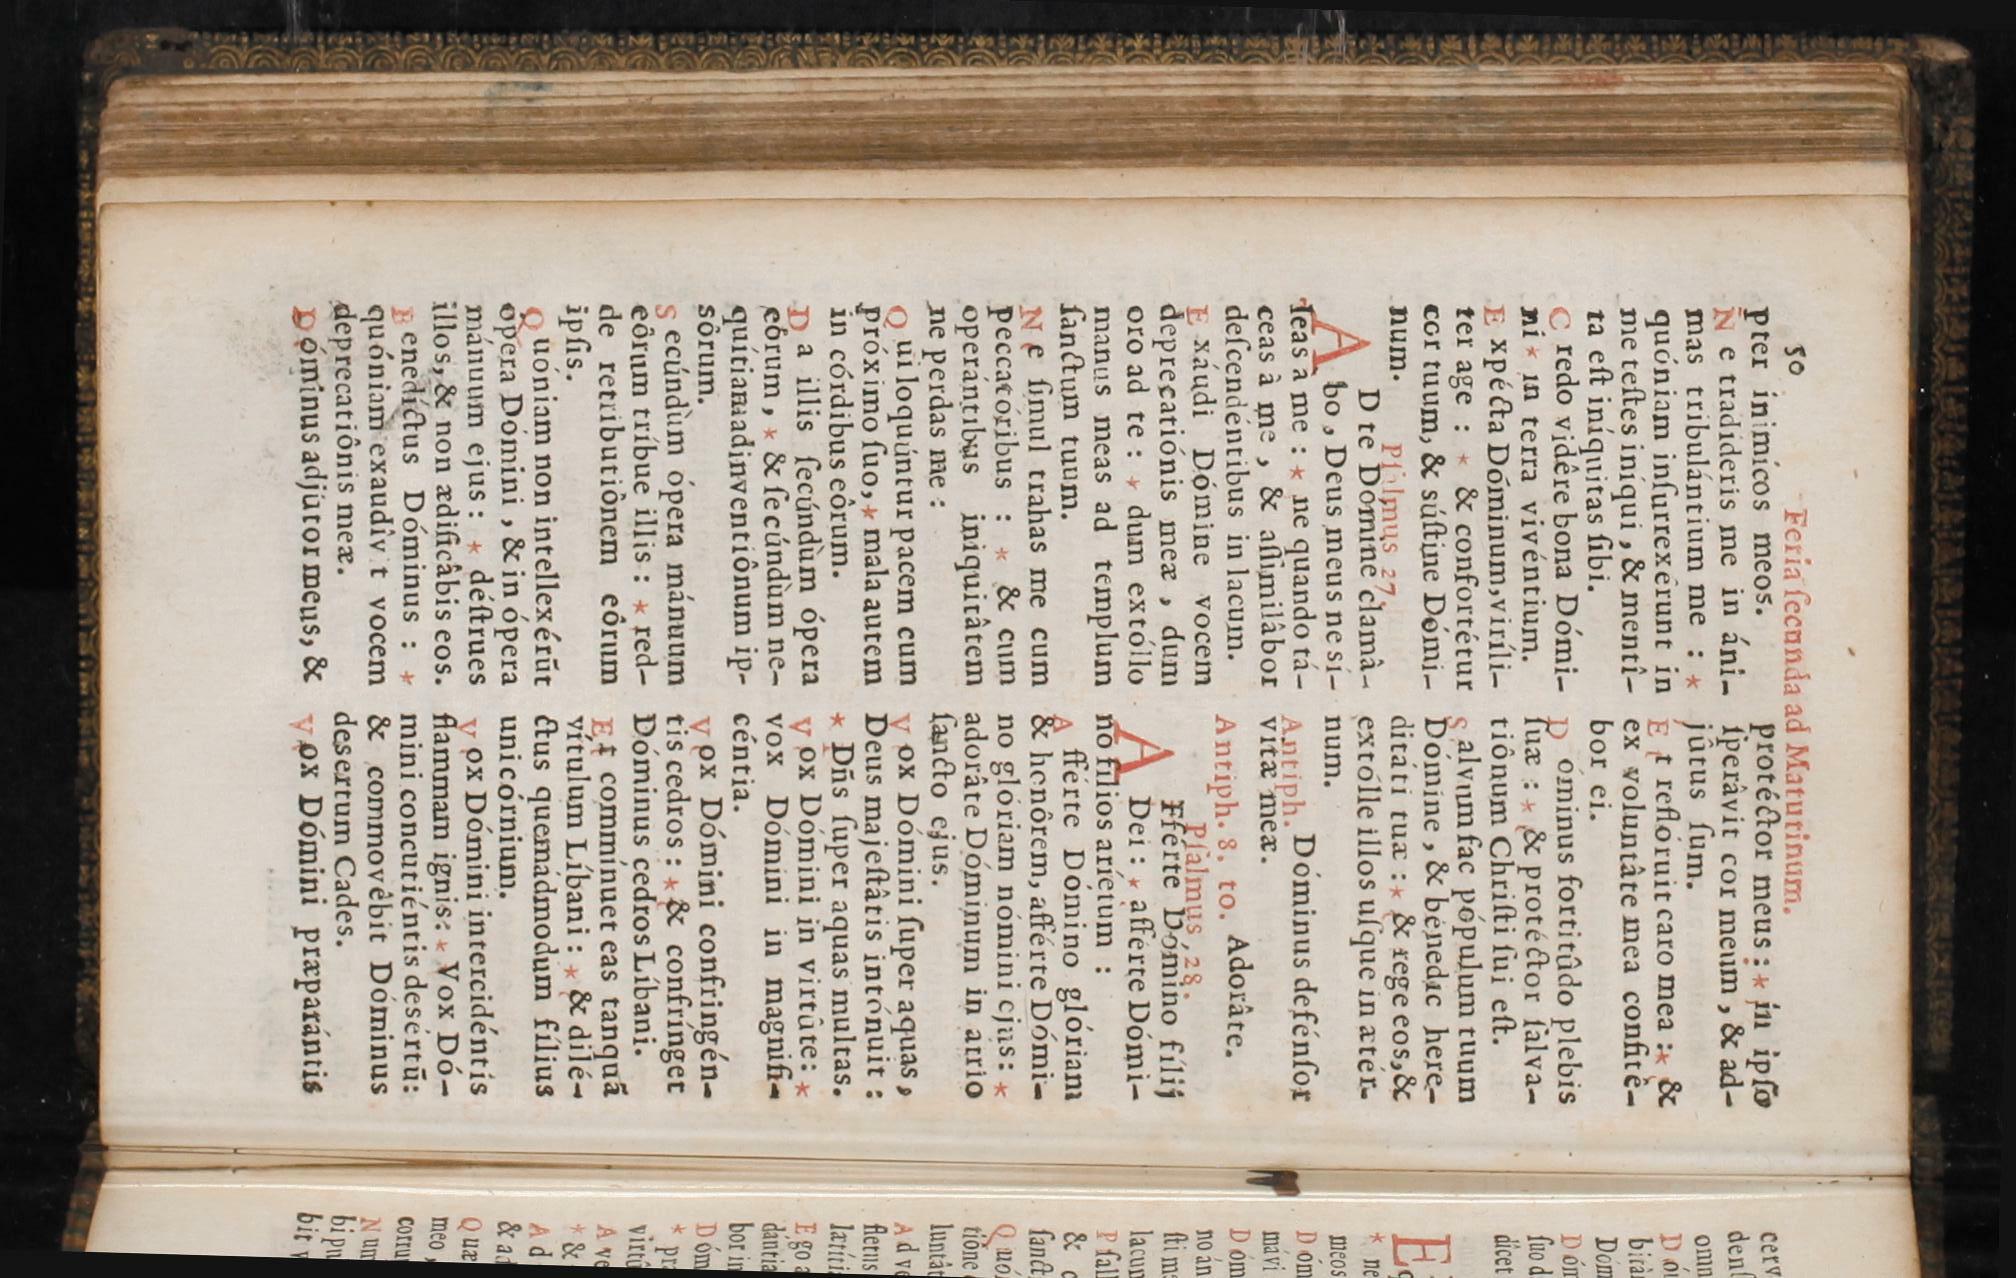 50 Feria ſecunda ad Matutinum.
pter inimícos meos.
N e tradíderis me in áni-
mas tribulántium me : *
quóniam inſurrexérunt in
me teſtes iníqui, & mentî-
ta eſt iníquitas ſibi.
C redo vidêre bona Dómi-
ni * in terra vivéntium.
E xpécta Dóminum, viríli-
ter age : * & confortétur
cor tuum, & súſtine Dómi-
num.
Pſalmus 27.
A D te Dómine clamâ-
bo, Deus meus ne sí-
leas a me : * ne quando tá-
ceas à me, & aſſimilâbor
deſcendéntibus in lacum.
E xáudi Dómine vocem
deprecatiónis meæ, dum
oro ad te : * dum extóllo
manus meas ad templum
ſanctum tuum.
N e ſimul trahas me cum
peccatóribus : * & cum
operántibus iniquitâtem
ne perdas me :
Q ui loquúntur pacem cum
próximo ſuo, * mala autem
in córdibus eôrum.
D a illis ſecúndùm ópera
eôrum, * & ſecúndùm ne-
quítiam adinventiônum ip-
sôrum.
S ecúndùm ópera mánuum
eôrum tríbue illis : * red-
de retributiônem eôrum
ipſis.
Q uóniam non intellexérũt
opera Dómini, & in ópera
mánuum ejus : * déſtrues
illos, & non ædificâbis eos.
B enedíctus Dóminus : *
quóniam exaudîvit vocem
deprecatiônis meæ.
D óminus adjûtor meus, &
protéctor meus : * in ipſo
ſperâvit cor meum, & ad-
jûtus ſum.
E t reflóruit caro mea : * &
ex voluntâte mea confité-
bor ei.
D óminus fortitûdo plebis
ſuæ : * & protéctor ſalva-
tiônum Chriſti ſui eſt.
S alvum fac pópulum tuum
Dómine, & bénedic here-
ditáti tuæ : * & rege eos, &
extólle illos uſque in ætér-
num.
Antiph. Dóminus defénſor
vitæ meæ.
Antiph. 8. to. Adorâte.
Pſalmus 28.
A Fférte Dómino fílij
Dei : * afférte Dómi-
no filios aríetum :
A fférte Dómino glóriam
& honôrem, afférte Dómi-
no glóriam nómini ejus : *
adorâte Dóminum in atrio
ſancto ejus.
V ox Dómini ſuper aquas,
Deus majeſtâtis intónuit :
* Dñs ſuper aquas multas.
V ox Dómini in virtûte : *
vox Dómini in magnifi-
céntia.
V ox Dómini confringén-
tis cedros : * & confrínget
Dóminus cedros Líbani.
E t commínuet eas tanquã
vítulum Líbani : * & dilé-
ctus quemádmodum fílius
unicórnium.
V ox Dómini intercidéntis
flammam ignis : * Vox Dó-
mini concutiéntis desértũ:
& commovêbit Dóminus
desertum Cades.
V ox Dómini præparántis
cerv
denſ
omn
D ó
birà
Dóm
D óm
ſuo d
dícet
E
* ne
meos
D óm
mávi
D óm
no án
ſti me
lacum
P ſall
& c
ſanct
Q uó
tiône
luntât
A d ve
fletus
lætíti
E go a
dántia
bor in
D óm
* præ
virtû
A ve
* &
A d
& ad
Quæ
meo,
corru
N um
bi pu
bit v